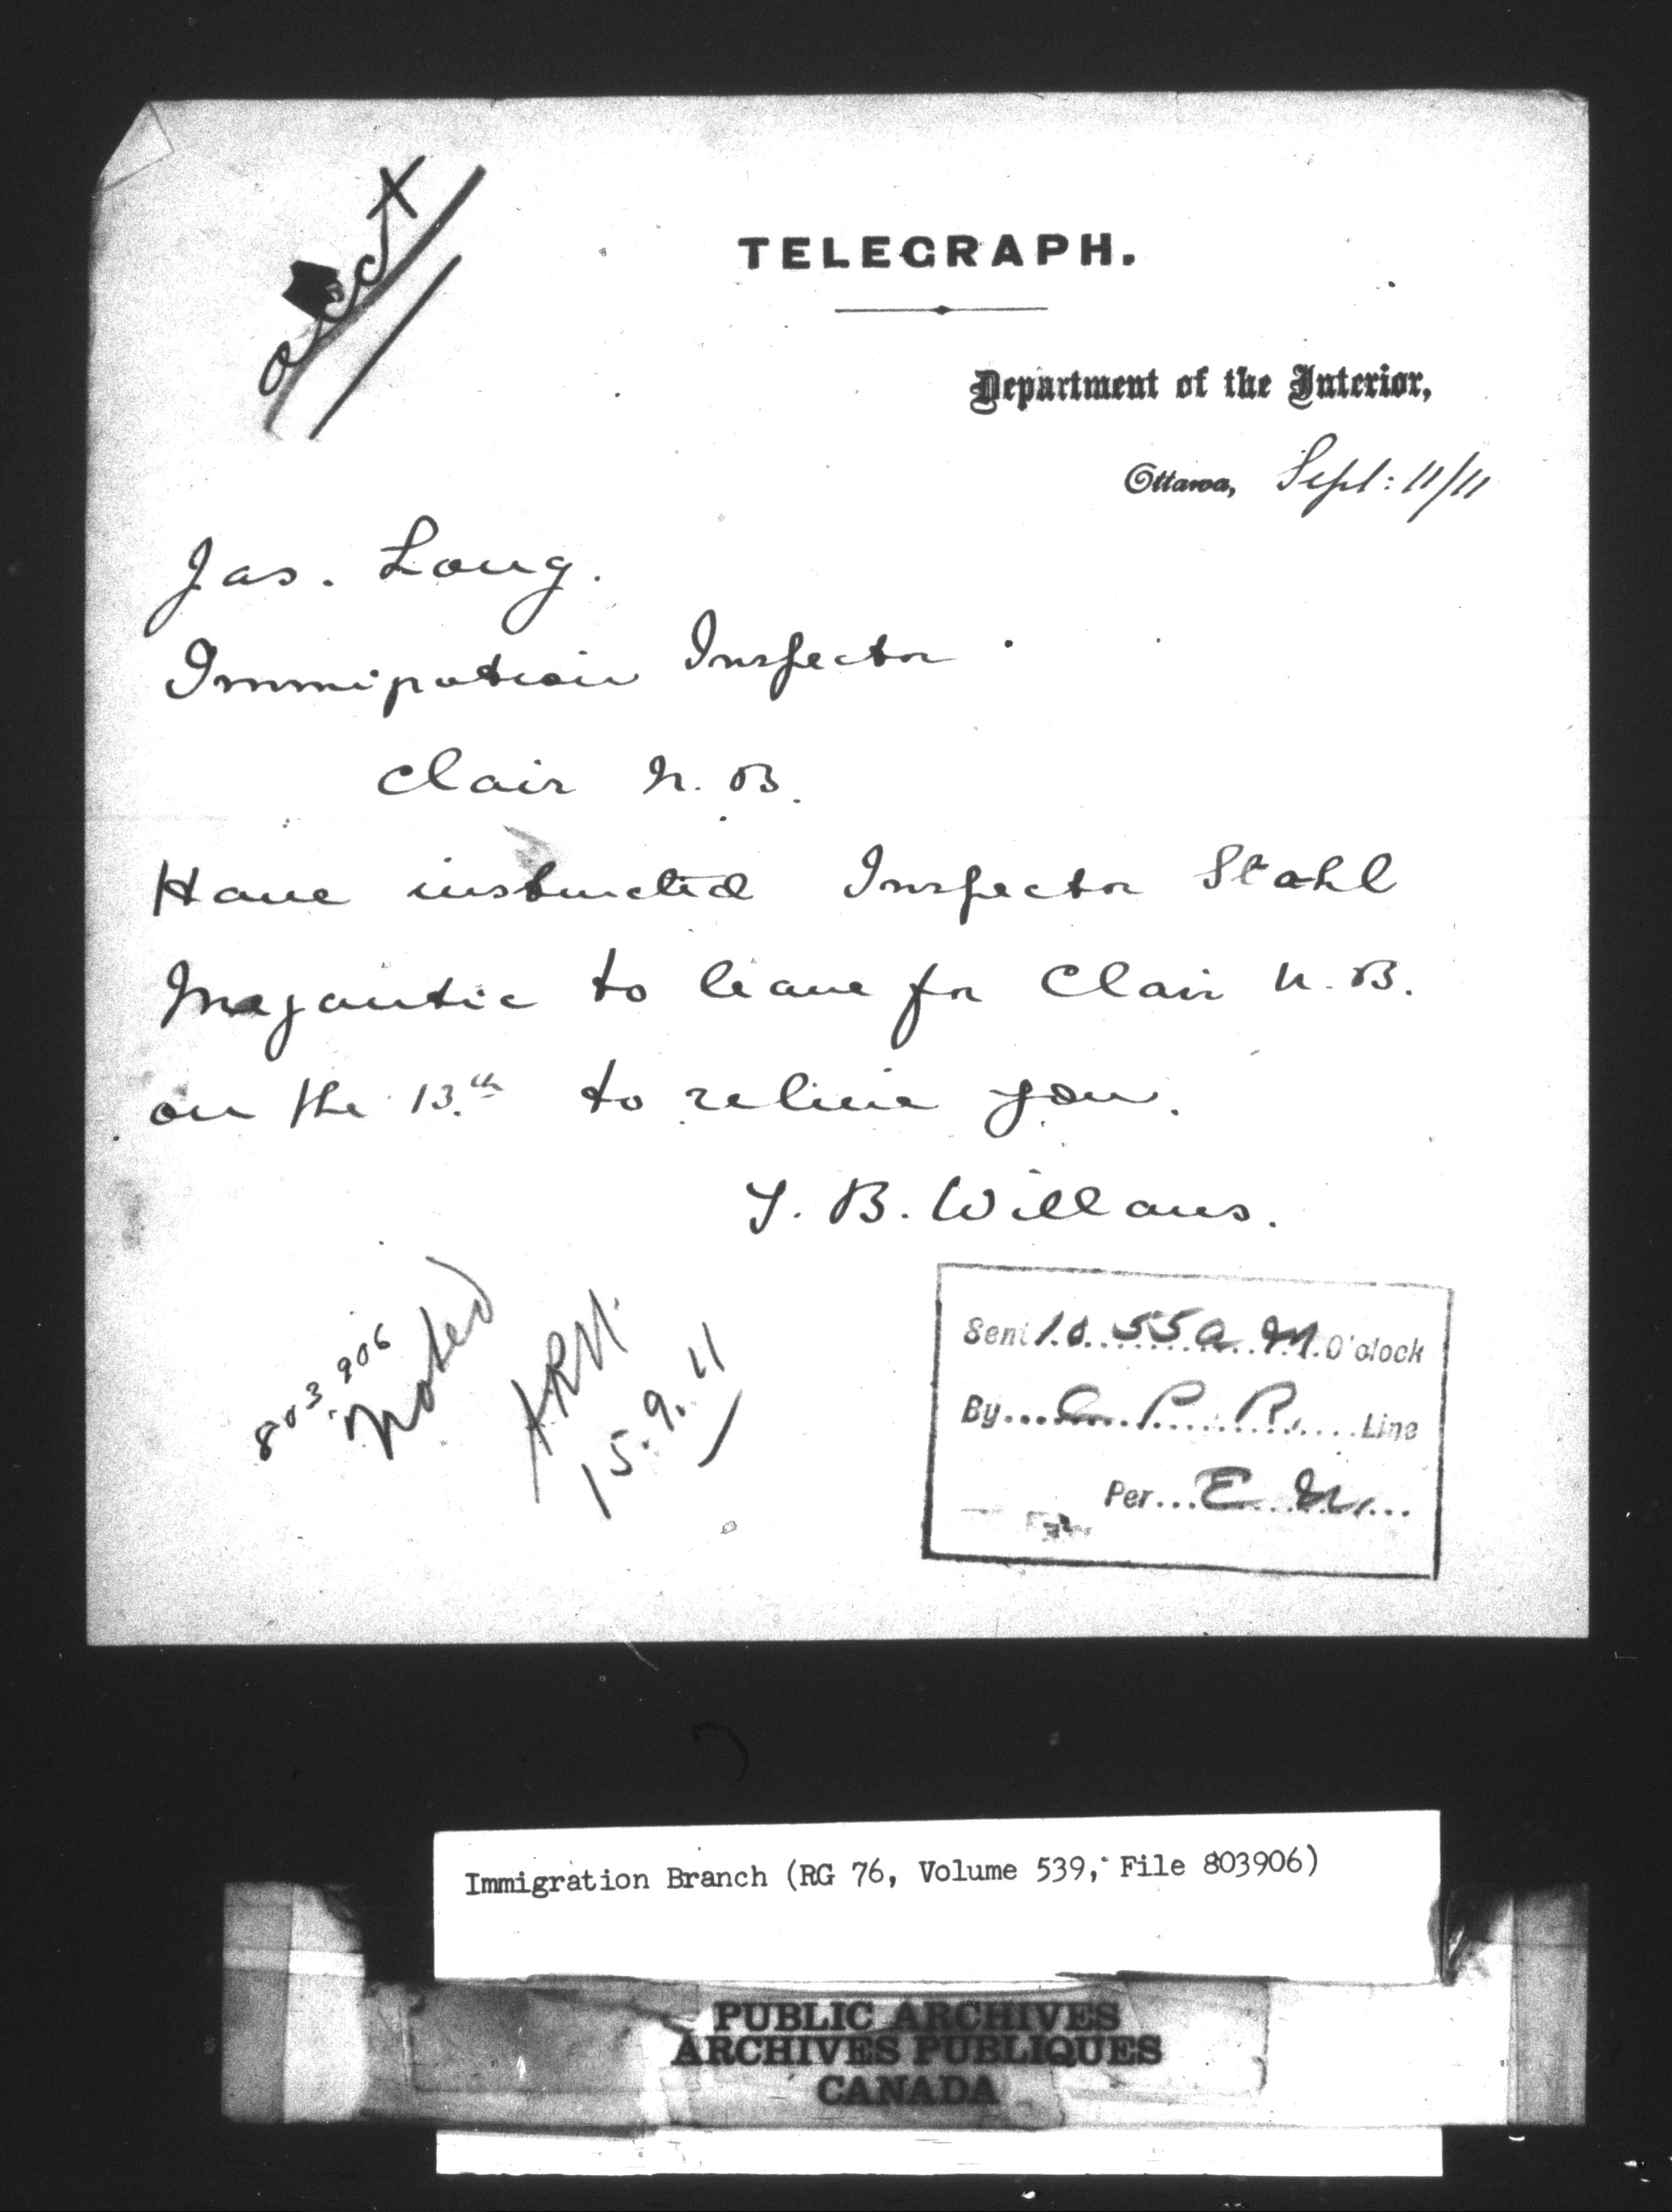 acct
TELEGRAPH.
Department of the Interior,
Ottawa, Sept: 11/11
Jas. Long.
Immigration Inspector.
Clair N.B.
Have instructed Inspector Stahl
Megantic to leave for Clair N.B.
on the 13.th to relieve you.
T. B. Willans.
803906
Noted
15.9.11
Sent 10.55 a M. O'clock
By C. P. R. Line
Per E.
Immigration Branch (RG 76, Volume 539, File 803906)
PUBLIC ARCHIVES
ARCHIVES PUBLIQUES
CANADA